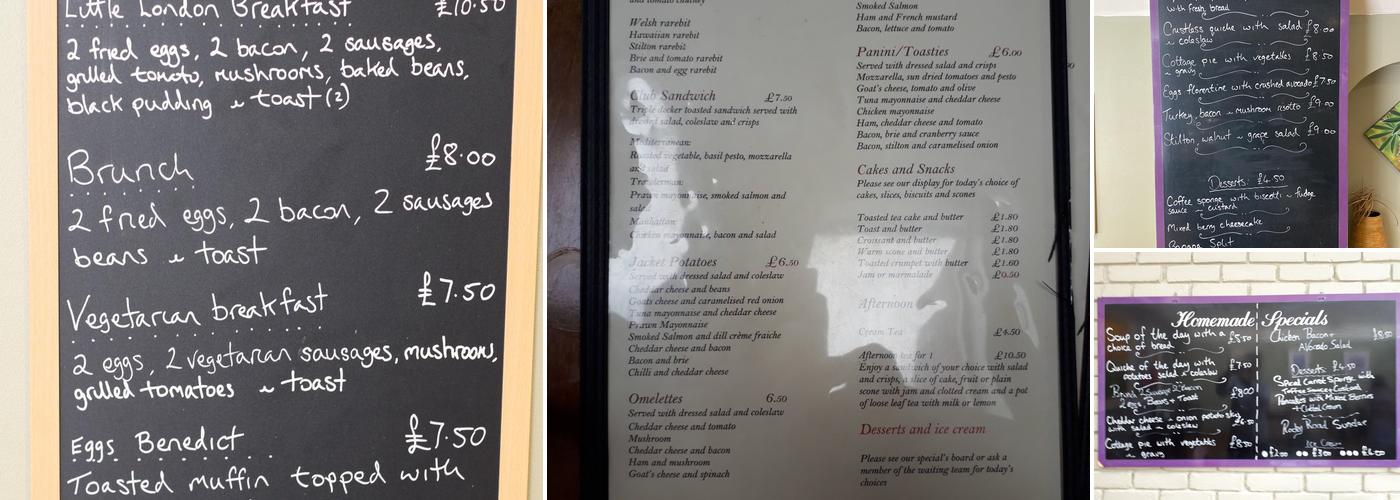 Little London Breakfast £10.50
2 fried eggs, 2 bacon, 2 sausages,
grilled tomato, mushrooms, baked beans,
black pudding & toast (2)
Brunch £8.00
2 fried eggs, 2 bacon, 2 sausages
beans & toast
Vegetarian breakfast £7.50
2 eggs, 2 vegetarian sausages, mushrooms,
grilled tomatoes & toast
Eggs Benedict £7.50
Toasted muffin topped with
and tomato chutney
Welsh rarebit
Hawaiian rarebit
Stilton rarebit
Brie and tomato rarebit
Bacon and egg rarebit
Club Sandwich £7.50
Triple decker toasted sandwich served with
dressed salad, coleslaw and crisps
Mediterranean:
Roasted vegetable, basil pesto, mozzarella
and salad
Prawn mayonnaise, smoked salmon and
salad
Manhattan:
Chicken mayonnaise, bacon and salad
Jacket Potatoes £6.50
Served with dressed salad and coleslaw
Cheddar cheese and beans
Goats cheese and caramelised red onion
Tuna mayonnaise and cheddar cheese
Prawn Mayonnaise
Smoked Salmon and dill crème fraiche
Cheddar cheese and bacon
Bacon and brie
Chilli and cheddar cheese
Omelettes 6.50
Served with dressed salad and coleslaw
Cheddar cheese and tomato
Mushroom
Cheddar cheese and bacon
Ham and mushroom
Goat's cheese and spinach
Smoked Salmon
Ham and French mustard
Bacon, lettuce and tomato
Panini/Toasties £6.00
Served with dressed salad and crisps
Mozzarella, sun dried tomatoes and pesto
Goat's cheese, tomato and olive
Tuna mayonnaise and cheddar cheese
Chicken mayonnaise
Ham, cheddar cheese and tomato
Bacon, brie and cranberry sauce
Bacon, stilton and caramelised onion
Cakes and Snacks
Please see our display for today's choice of
cakes, slices, biscuits and scones
Toasted tea cake and butter £1.80
Toast and butter £1.80
Croissant and butter £1.80
Warm scone and butter £1.80
Toasted crumpet with butter £1.60
Jam or marmalade £0.50
Afternoon
Cream Tea £4.50
Afternoon tea for 1 £10.50
Enjoy a sandwich of your choice with salad
and crisps, a slice of cake, fruit or plain
scone with jam and clotted cream and a pot
of loose leaf tea with milk or lemon
Desserts and ice cream
Please see our special's board or ask a
member of the waiting team for today's
choices
with fresh bread
Crustless quiche with salad £8.00
& coleslaw
Cottage pie with vegetables £8.50
& gravy
Eggs florentine with crushed avocado £7.50
Turkey, bacon & mushroom risotto £9.00
Stilton, walnut & grape salad £9.00
Desserts: £4.50
Coffee sponge with biscotti & fudge
sauce & custard
Mixed berry cheesecake
Banana Split
Homemade Specials
Soup of the day with a £5.50
choice of bread
Quiche of the day with £7.50
potatoes salad & coleslaw
Brunch 2 Sausage 2 bacon £8.00
2 egg Beans & Toast
Cheddar cheese & onion potato skins
with salad & coleslaw £6.50
Cottage pie with vegetables £8.50
& gravy
Chicken Bacon & £8.50
Avocado Salad
Desserts £4.50
Spiced Carrot Sponge with
Toffee Sauce & Custard
Pancakes with Mixed Berries
+ Clotted Cream
Rocky Road Sundae
Ice Cream
£2.00 £3.00 £4.00